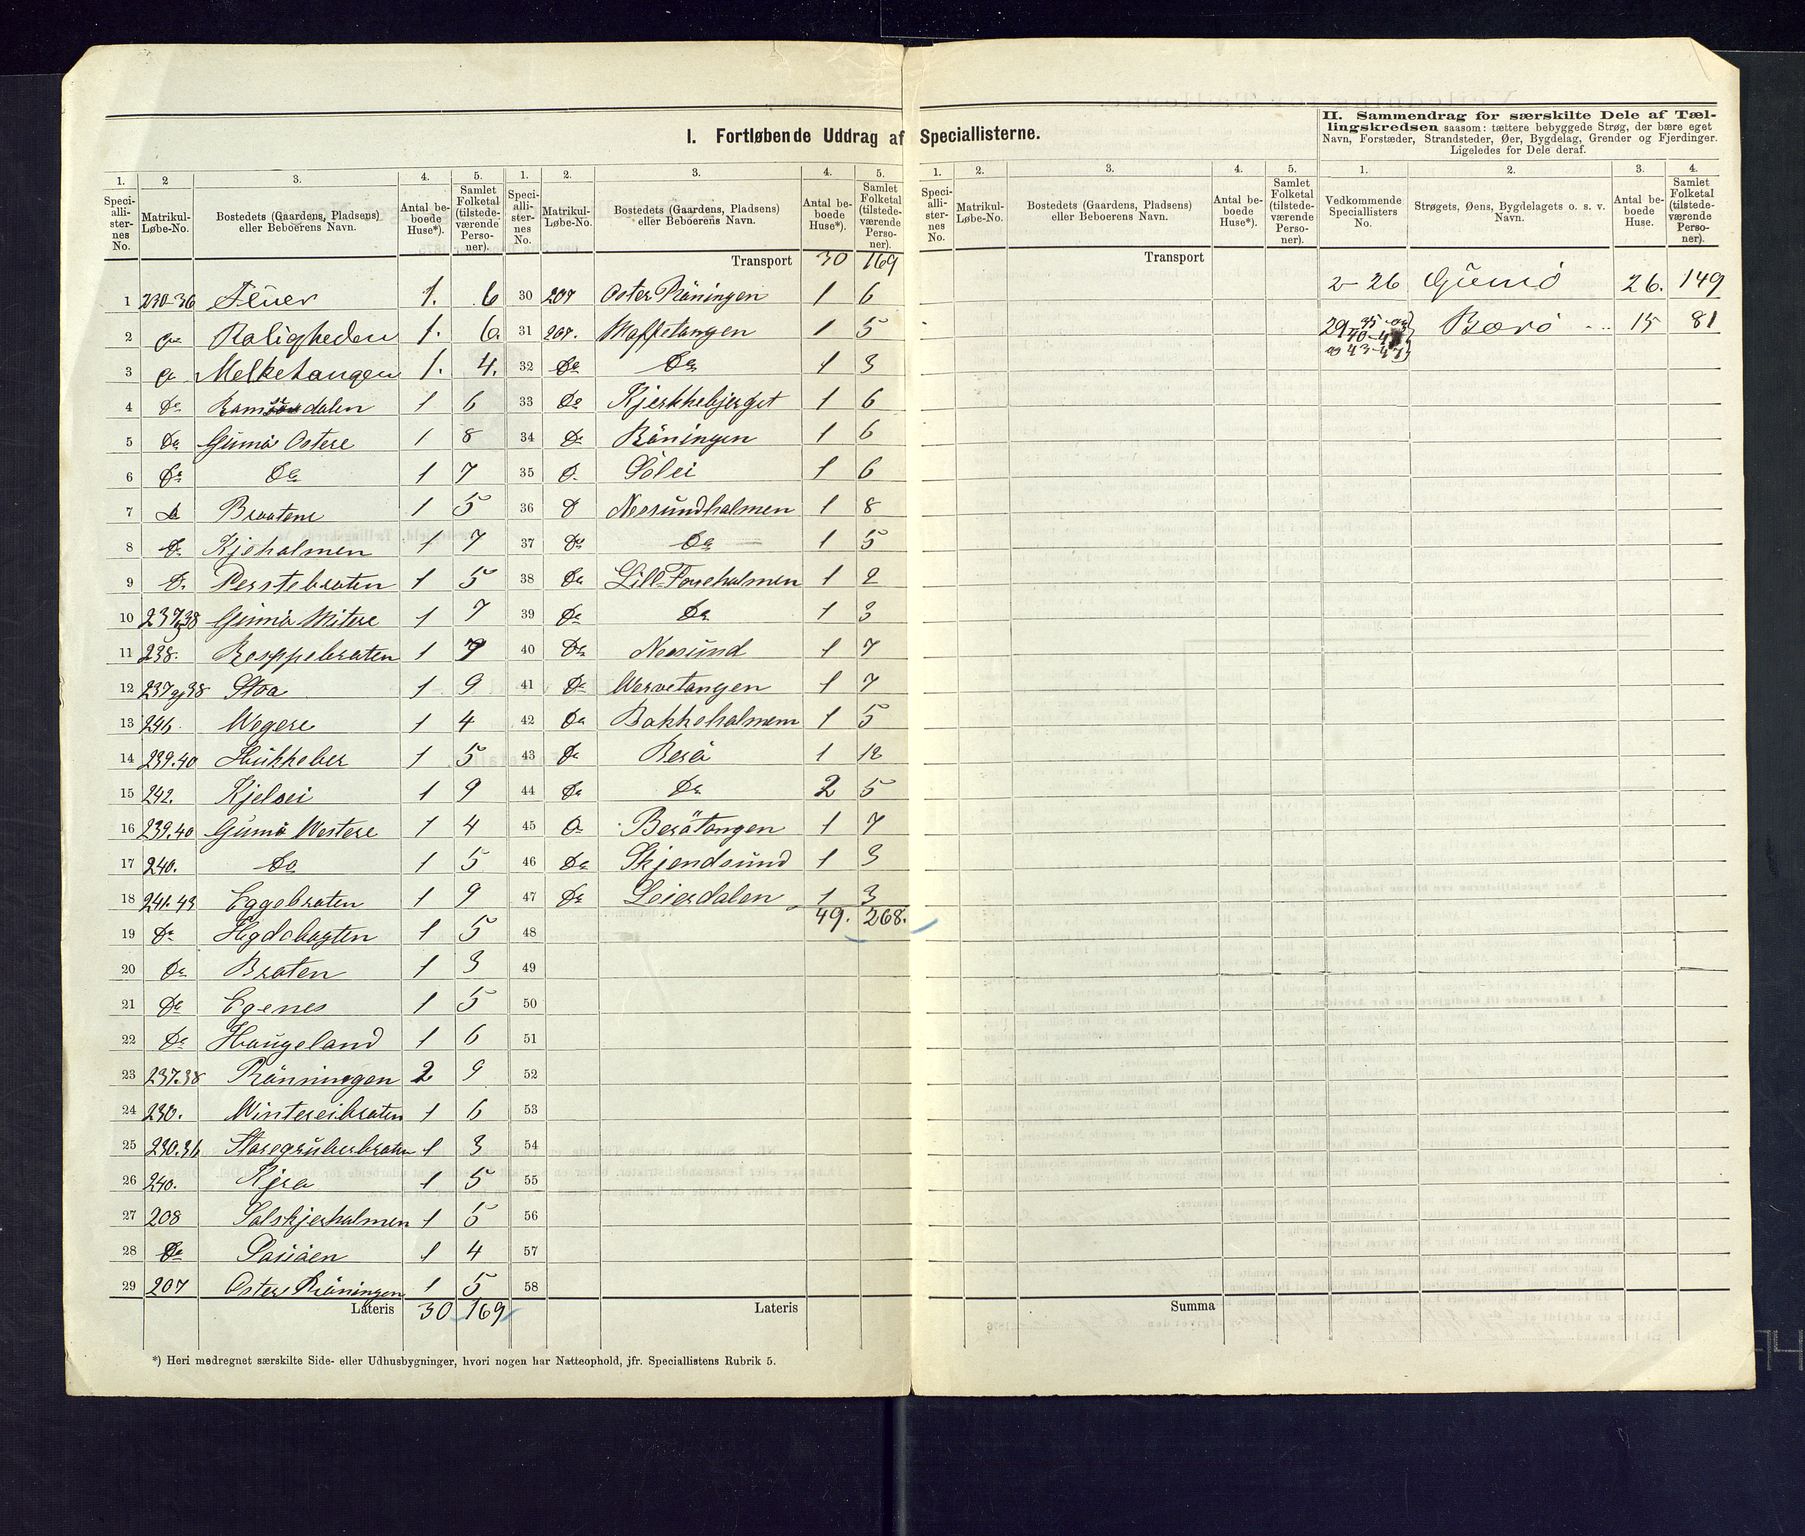 I. Fortløbende Uddrag af Speciallisterne.
II. Sammendrag for særskilte Dele af Tællingskredsen saasom: tættere bebyggede Strøg, der bære eget
Navn, Forstæder, Strandsteder, Øer, Bygdelag, Grender og Fjerdinger.
Ligeledes for Dele deraf.
1. Speciallisternes No. 2 Matrikul-Løbe-No. 3. Bostedets (Gaardens, Pladsens) eller Beboerens Navn. 4. Antal beboede Huse*). 5. Samlet Folketal (tilstedeværende Personer).
1 230-36 1. 6
2 Roligheden 1. 6.
3 Melketangen 1. 4.
4 Do dalen 1 6
5 Do Gumö Ostere 1 8
6 Do Do 1 7
7 Do Braatene 1 5
8 Do Kjeholmen 1 7
9 D. Perstebraten 1 5
10 237 38 Gumö Mitere 1 7
11 238. Roppebraten 1 7
12 237 og 38 Stoa 1 9
13 246. Wegere 1 4
14 239.40 Hukkeber 1 5
15 242. Kjelsei 1 9
16 239.40 Gumö Westere 1 4
17 240. Do 1 5
18 241.43 Eggebraten 1 9
19 Do 1 5
20 Do Braten 1 3
21 Do Egenes 1 5
22 Do Haugeland 1 6
23 237.38 Rönningen 2 9
24 230. Wintereibraten 1 6
25 230.36 Storegruberbraten 1 3
26 240. Kjra 1 5
27 208 Solskjerholmen 1 5
28 Do 1 4
29 207 Ostere Röningen 1 5
Lateris 30 169
1. Speciallisternes No. 2. Matrikul-Løbe-No. 3. Bostedets (Gaardens, Pladsens) eller Beboerens Navn. 4. Antal beboede Huse*). 5. Samlet Folketal (tilstedeværende Personer).
Transport 30 169
30 207 Oster Röningen 1 6
31 207. Maffetangen 1 5
32 Do Do 1 3
33 Do Kjerkkebjerget 1 6
34 Do Röningen 1 6
35 D. Solei 1 6
36 D Nesundholmen 1 8
37 Do Do 1 5
38 Do Lill-Foreholmen 1 2
39 Do Do 1 3
40 Do Nesund 1 7
41 Do Wervetangen 1 7
42 Do Bakkeholmem 1 5
43 Do Berö 1 12
44 Do Do 2 5
45 Do Berötangen 1 7
46 Do Skjendsund 1 3
47 Do Leierdalen 1 3
49. 268.
48
49
50
51
52
53
54
55
56
57
58
Lateris
*) Heri medregnet særskilte Side- eller Udhusbygninger, hvori nogen har Natteophold, jfr. Speciallistens Rubrik 5.
1. Speciallisternes No. 2. Matrikul-Løbe-No. 3. Bostedets (Gaardens, Pladsens) eller Beboerens Navn. 4. Antal beboede Huse*). 5. Samlet Folketal (tilstedeværende Personer).
Transport
Summa
1. Vedkommende Speciallisters No. 2. Strøgets, Øens, Bygdelagets o. s. v. Navn. 3. Antal beboede Huse. 4. Samlet Folketal (tilstedeværende Personer).
2-26 Gumö 26. 149
29-35 Borö 15 81
og 43-47